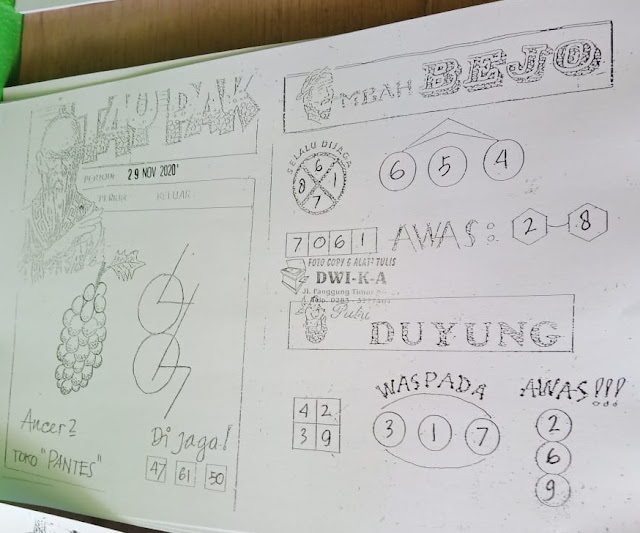 TAU PAK
PERIODE 29 NOV 2020
KELUAR
Ancer2
TOKO "PANTES"
Di jaga!
47 61 50
MBAH BEJO
SELALU DIJAGA
6
8 1
7
6 5 4
7 0 6 1
AWAS: 2 8
FOTO COPY & ALAT2 TULIS
DWI-K-A
Jl. Panggung Timur
Putri
DUYUNG
4 2
3 9
WASPADA
3 1 7
AWAS!!!
2
6
9